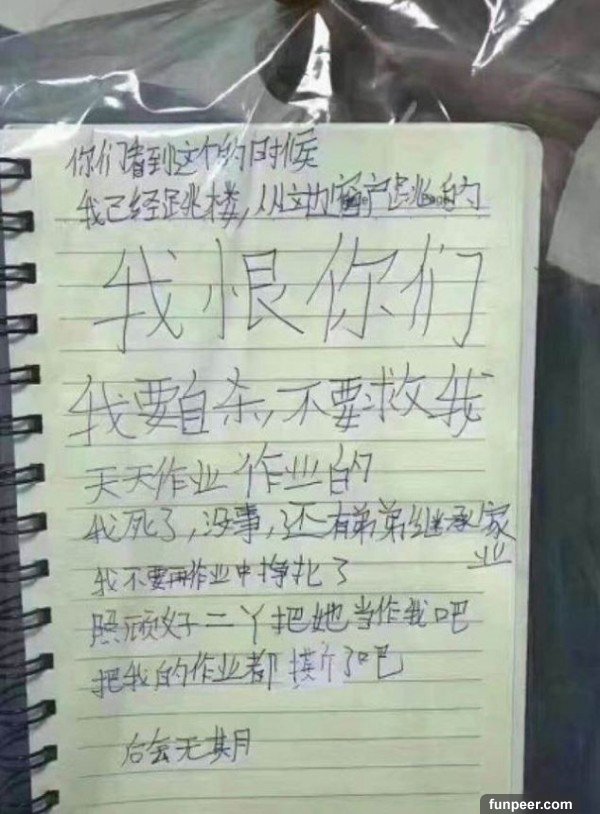 你们看到这个的时候
我已经跳楼,从这边窗户跳的
我恨你们
我要自杀,不要救我
天天作业作业的
我死了,没事,还有弟弟继承家业
我不要再作业中挣扎了
照顾好二丫把她当作我吧
把我的作业都撕了吧
后会无期
funpeer.com